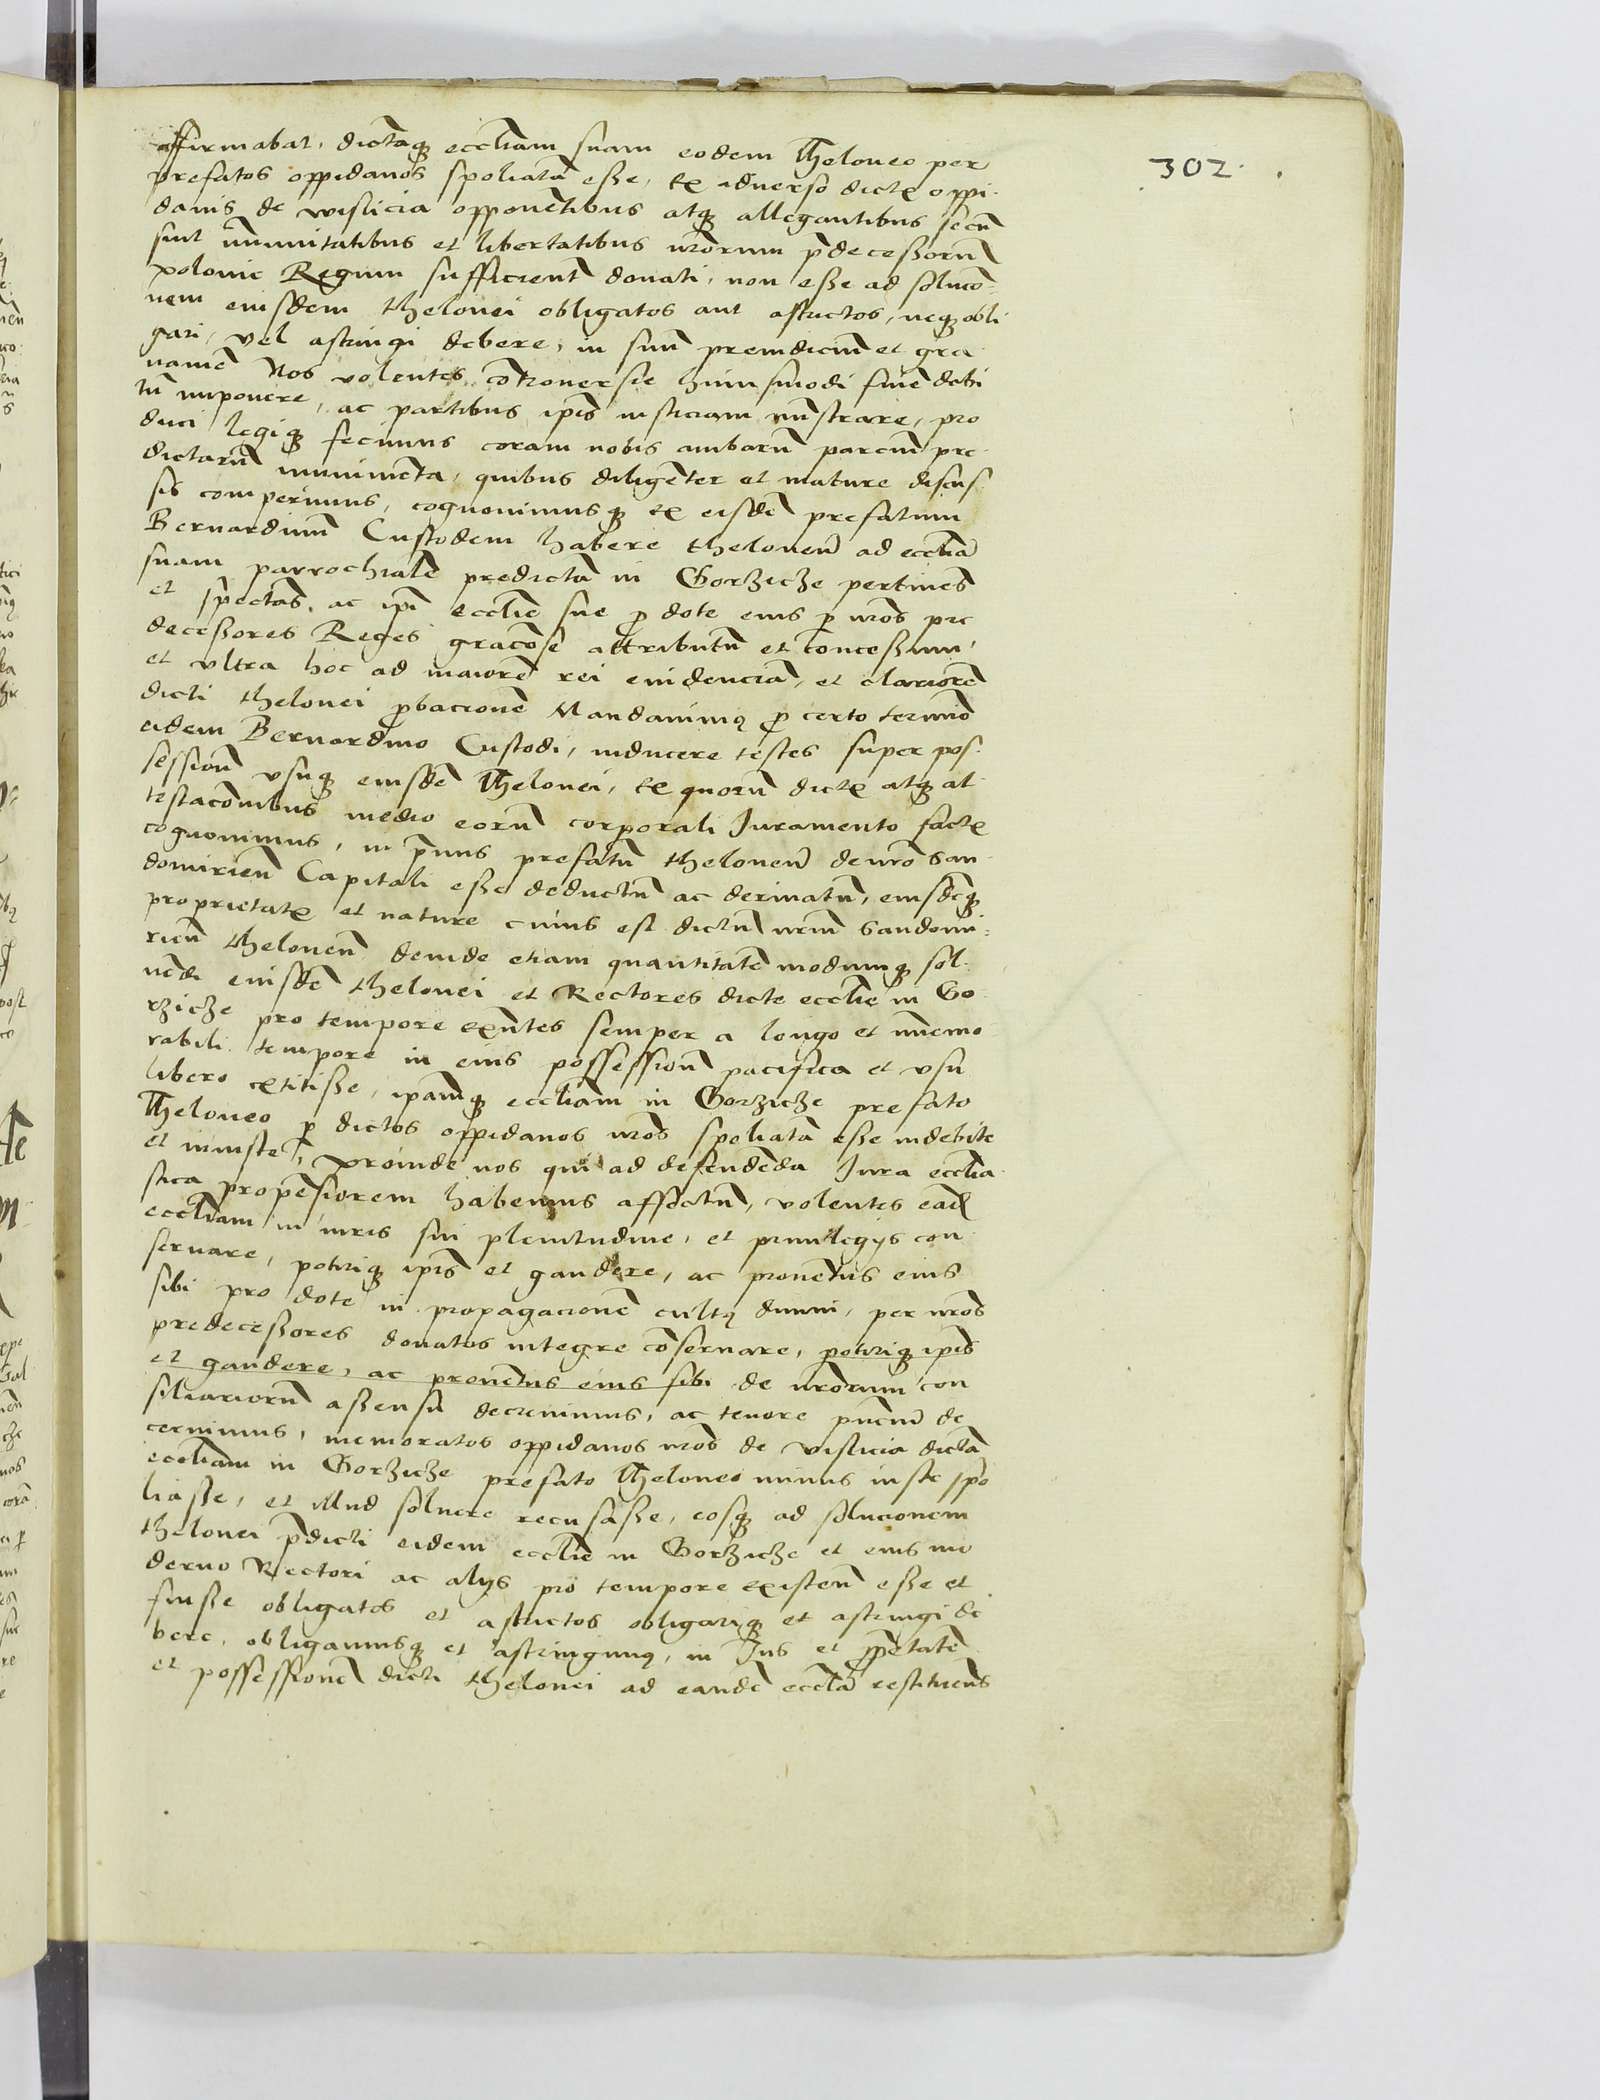 302
affirmabat, dictāq; eccliam suam eodem Theloneo per
prefatos oppidanos spoliatā esse, Ex adverso dictꝭ oppi-
danis de wislicia opponētibus atq; allegantibus se cū
sint īmunitatibus et libertatibus nr̄orum p̄decessorū
polonie Regum sufficienter donati, non esse ad solucō-
nem eiusdem thelonei obligatos aut astrictos, neq; obli
gari, vel astringi debere, in suū preiudiciū et gra
uamē Nos volentes cōtrouersie huiusmodi finē debi
tū imponere, ac partibus ip̄is iusticiam mīstrare, pro
duci legiq; fecimus coram nobis ambarū parciū pre
dictarū munimēta, quibus diligēter et mature discus
sis comperimus, cognouimusq; ex eisdē prefatum
Bernardinū Custodem habere theloneū ad eccliā
suam parrochialē predictā in Gorzicze pertinēs
et spectās, ac ipī ecclie sue ꝓ dote eius ꝑ nr̄os pre
decessores Reges graciōse attributū et concessum,
et vltra hoc ad maiorē rei euidenciā, et clariorē
dicti thelonei ꝓbacionē Mandauimꝰ ꝓ certo termīo
eidem Bernardino Custodi, inducere testes super pos
sessionē vsuq; eiusdē Thelonei, Ex quorū dictꝭ atq; at
testacōnibus medio eorū corporali Iuramento factꝭ
cognouimus, in p̄mis prefatū theloneū de nr̄o San
domirien̄ Capitali esse deductū ac deriuatū, eiusdēq;
proprietatꝭ et nature cuius est dictū nr̄m Sandomi-
rien̄ theloneū deinde etiam quantitatē modumq; sol
uēdi eiusdē thelonei et Rectores dicte ecclie in Go
rzicze pro tempore exn̄tes semper a longo et īmemo
rabili tempore in eius possessionē pacifica et vsu
libero extitisse, ipāmq; eccliam in Gorzicze prefato
Theloneo ꝑ dictos oppidanos nr̄os spoliatā esse indebite
et iniuste, proinde nos qui ad defendēda Iura ecclia
stica propēsiorem habemus affectū, volentes eād
eccliam in iuris sui plenitudine, et priuilegijs con
seruare, potiriq; ip̄is et gaudere, ac prouētus eius
sibi pro dote in propagacionē cultꝰ diuini, per nr̄os
predecessores donatos integre cōseruare, potiriq; ip̄is
et gaudere, ac prouētus eius sibi de nr̄orum con
siliariorū assensu decreuimus, ac tenore pn̄ciū de
cernimus, memoratos oppidanos nr̄os de vislicia dictā
eccliam in Gorzicze prefato Theloneo minus iuste spo
liasse, et illud soluere recusasse, eosq; ad solucionem
thelonei p̄dicti eidem ecclie in Gorzicze et eius mo
derno Rectori ac alijs pro tempore existen̄ esse et
fuisse obligatos et astrictos obligariq; et astringi de
bere, obligamusq; et astringimꝰ, in Ius et ꝓp̄etatē
et possessionē dicti thelonei ad eandē eccliā restituen̄s